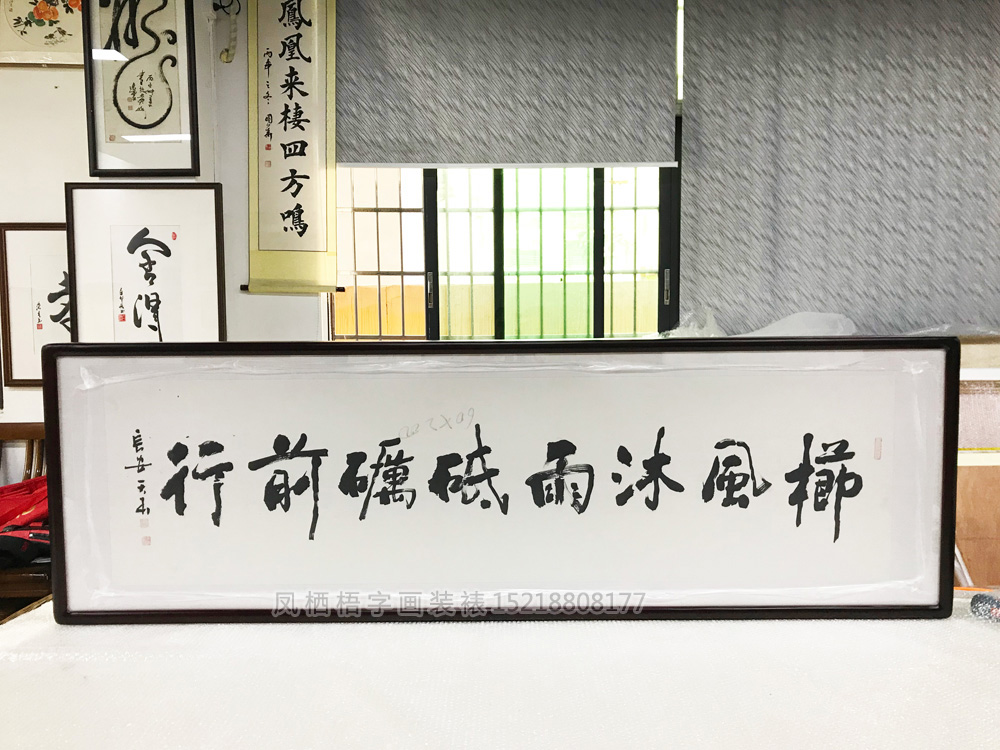 鳳凰来棲四方鳴
丙申之冬
舍得
櫛風沐雨砥礪前行
長安
凤栖梧字画装裱15218808177